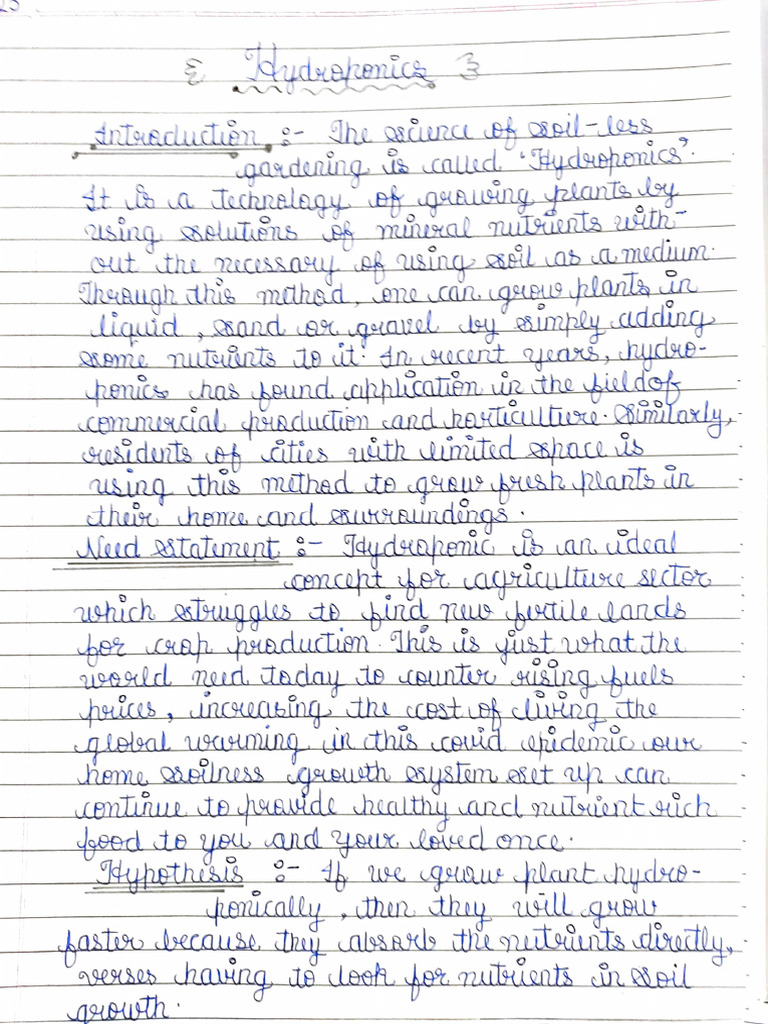 Hydroponics
Introduction :- The science of soil-less
gardening is called 'Hydroponics'.
It is a technology of growing plants by
using solutions of mineral nutrients with-
out the necessary of using soil as a medium.
Through this method, one can grow plants in
liquid, sand or gravel by simply adding
some nutrients to it. In recent years, hydro-
ponics has found application in the field of
commercial production and horticulture. Similarly,
residents of cities with limited space is
using this method to grow fresh plants in
their home and surroundings.
Need statement :- Hydroponic is an ideal
concept for agriculture sector
which struggles to find new fertile lands
for crop production. This is just what the
world need today to counter rising fuels
prices, increasing the cost of living the
global warming in this covid epidemic our
home soilness growth system set up can
continue to provide healthy and nutrient rich
food to you and your loved once.
Hypothesis :- If we grow plant hydro-
ponically, then they will grow
faster because they absorb the nutrients directly,
verses having to look for nutrients in soil
growth.